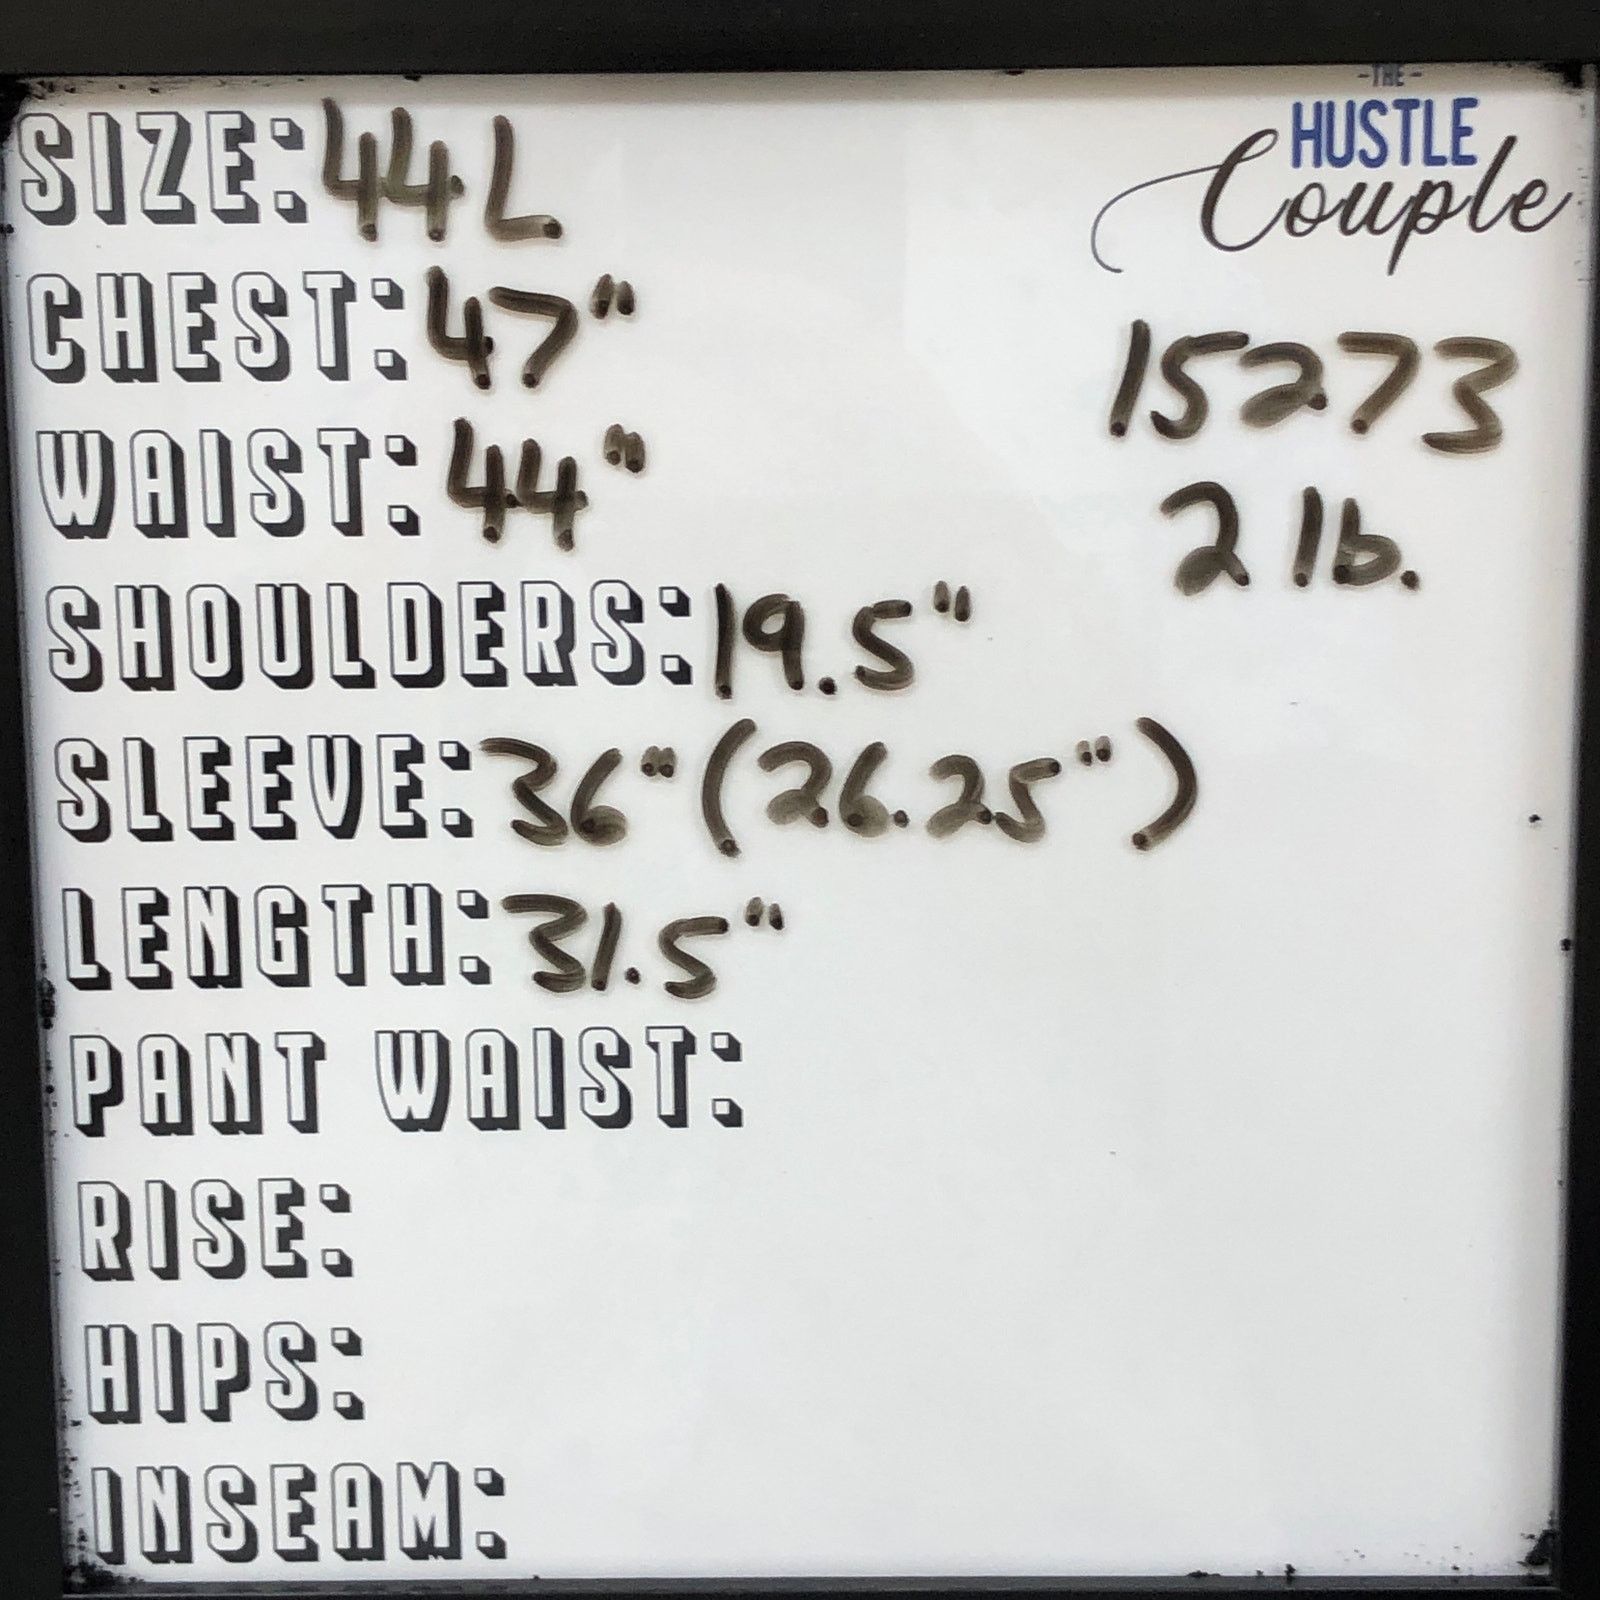 -THE-
HUSTLE
Couple
SIZE: 44L
CHEST: 47"
WAIST: 44"
SHOULDERS: 19.5"
SLEEVE: 36" (26.25")
LENGTH: 31.5"
PANT WAIST:
RISE:
HIPS:
INSEAM:
15273
2 lb.